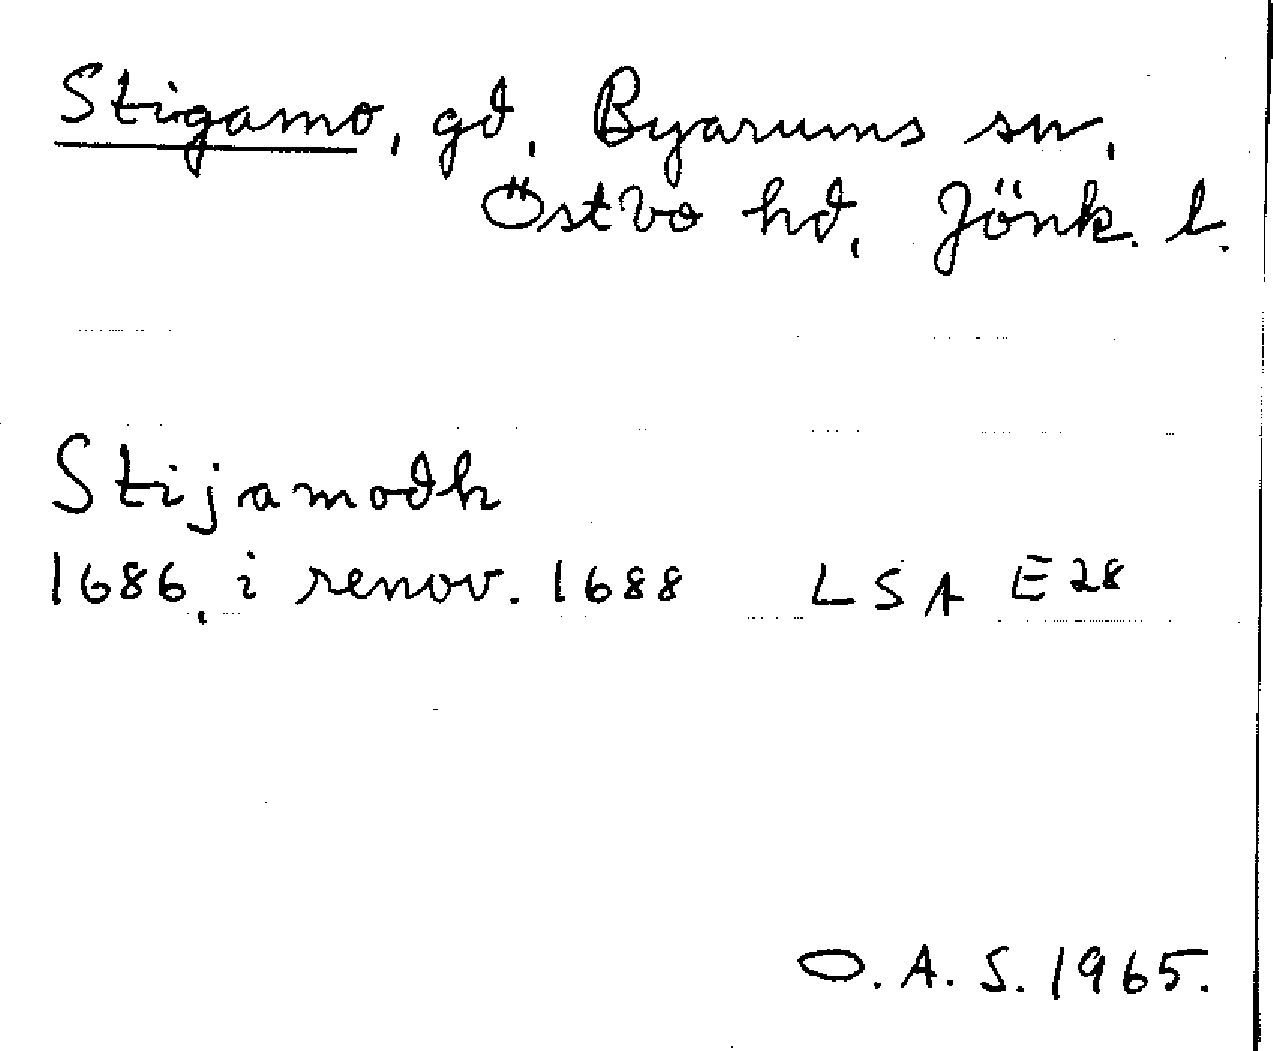 Stigamo, gd, Byarums sn,
Östbo hd, Jönk. l.
Stijamodh
1686, i renov. 1688 LSA E28
O.A.S. 1965.